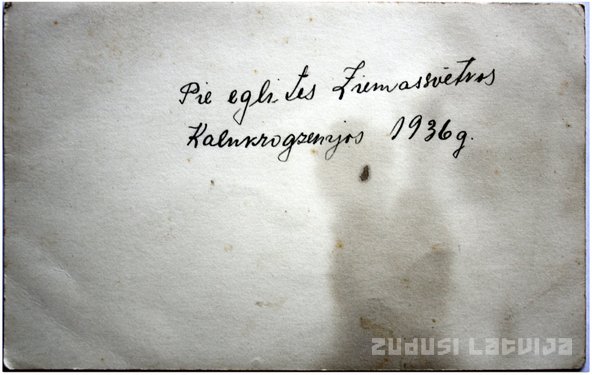 Pie eglītes Ziemassvētros
Kalnkrogzemjos 1936g.
ZUDUSI LATVIJA